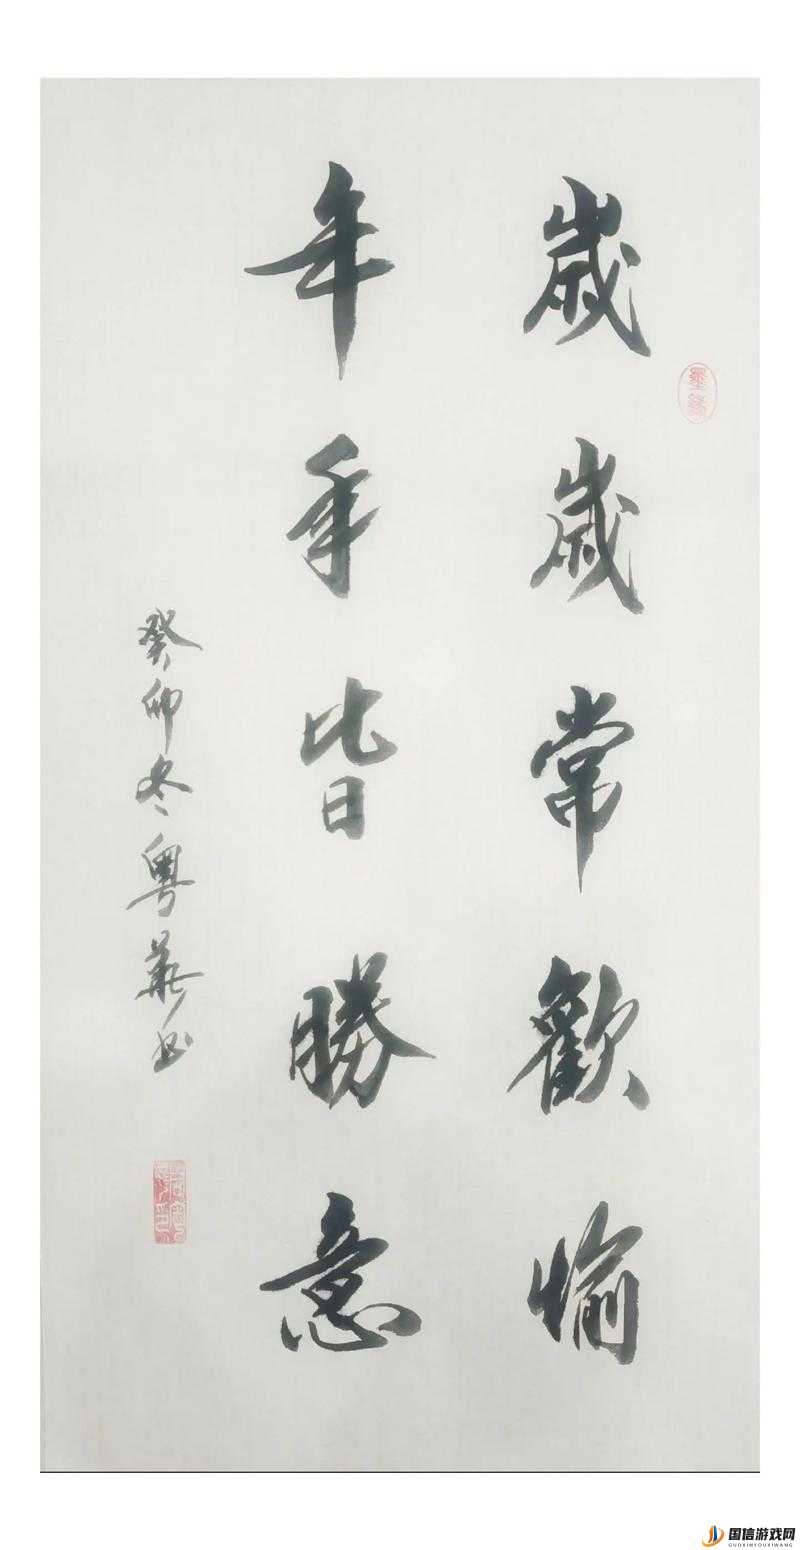 歲歲常歡愉
年年皆勝意
癸卯冬粤華书
国信游戏网
GUOXINYOUXIWANG